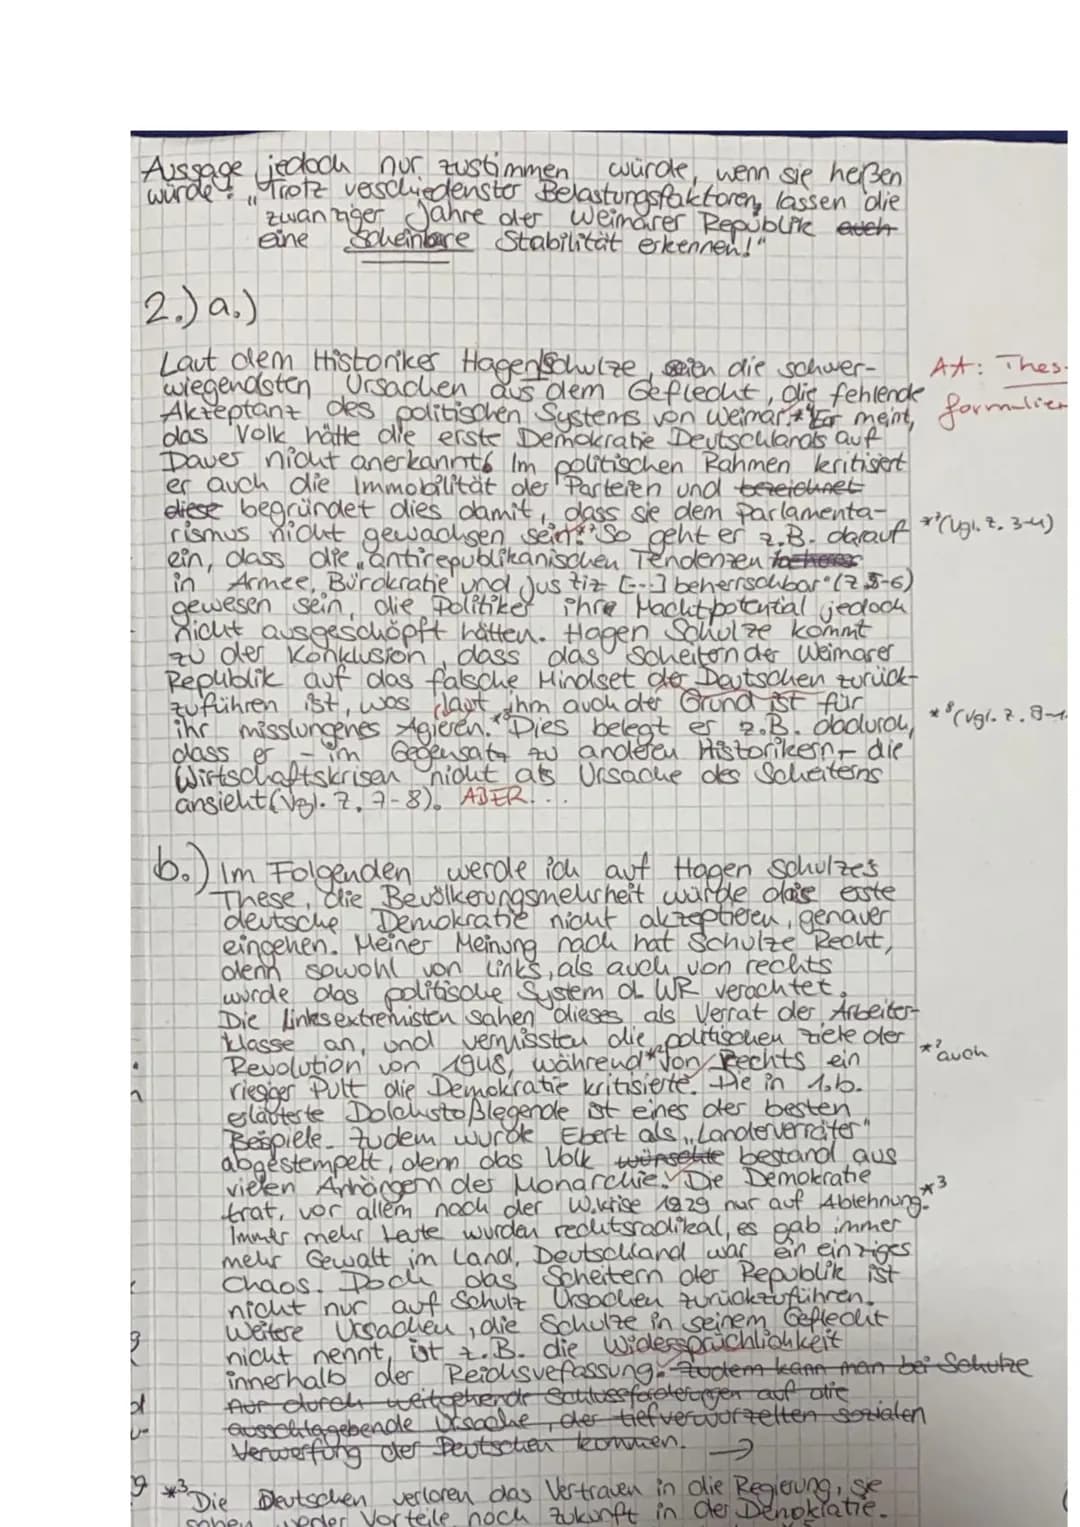 Aussage jedoch nur zustimmen würde, wenn sie heißen
würde: „Trotz verschiedenster Belastungsfaktoren, lassen die
zwanziger Jahre der Weimarer Republik auch
eine Scheinbare Stabilität erkennen!"
2.) a.)
Laut dem Historiker Hagen Schulze, seien die schwer-
wiegendsten Ursachen aus dem Geflecht, die fehlende
Akzeptanz des politischen Systems von Weimar. Er meint,
das Volk hätte die erste Demokratie Deutschlands auf
Dauer nicht anerkannt. Im politischen Rahmen kritisiert
er auch die Immobilität der Parteien und bezeichnet
diese begründet dies damit, dass sie dem Parlamenta-
rismus nicht gewachsen sein. *⁷ So geht er z.B. darauf
ein, dass die „antirepublikanischen Tendenzen
in Armee, Bürokratie und Justiz [...] beherrschbar" (Z 5-6)
gewesen sein, die Politiker ihre Machtpotential jedoch
nicht ausgeschöpft hätten. Hagen Schulze kommt
zu der Konklusion, dass das Scheitern der Weimarer
Republik auf das falsche Mindset der Deutschen zurück-
zuführen ist, was laut ihm auch der Grund ist für
ihr misslungenes Agieren. *⁸ Dies belegt er z.B. dadurch,
dass er - im Gegensatz zu anderen Historikern - die
Wirtschaftskrisen nicht als Ursache des Scheiterns
ansieht (Vgl. Z. 7-8). ABER...
A+: Thes-
formulier
*⁷ (Vgl. Z. 3-4)
*⁸ (Vgl. Z. 9-1
b.) Im Folgenden werde ich auf Hagen Schulzes
These, die Bevölkerungsmehrheit würde die erste
deutsche Demokratie nicht akzeptieren, genauer
eingehen. Meiner Meinung nach hat Schulze Recht,
denn sowohl von Links, als auch von rechts
wurde das politische System d. WR verachtet.
Die Linksextremisten sahen dieses als Verrat der Arbeiter-
klasse an, und vermissten die politischen Ziele der
Revolution von 1948, während *² von Rechts ein
riesiger Pult die Demokratie kritisierte. Die in 1.b.
erläuterte Dolchstoßlegende ist eines der besten
Beispiele. Zudem wurde Ebert als „Landerverräter"
abgestempelt, denn das Volk wünschte bestand aus
vielen Anhängern der Monarchie. Die Demokratie
trat, vor allem nach der W.krise 1929 nur auf Ablehnung. *³
Immer mehr Leute wurden rechtsradikal, es gab immer
mehr Gewalt im Land, Deutschland war ein einziges
Chaos. Doch das Scheitern der Republik ist
nicht nur auf Schulz Ursachen zurückzuführen.
Weitere Ursachen, die Schulze in seinem Geflecht
nicht nennt, ist z.B. die Widersprüchlichkeit
innerhalb der Reichsvefassung. Zudem kann man bei Schulze
nur durch weitgehende Schlussfolderungen auf die
ausschlagebende Ursache, der tiefverwurzelten sozialen
Verwerfung der Deutschen kommen. →
*² auch
*³ Die Deutschen verloren das Vertrauen in die Regierung, sie
sahen weder Vorteile noch Zukunft in der Demokratie.